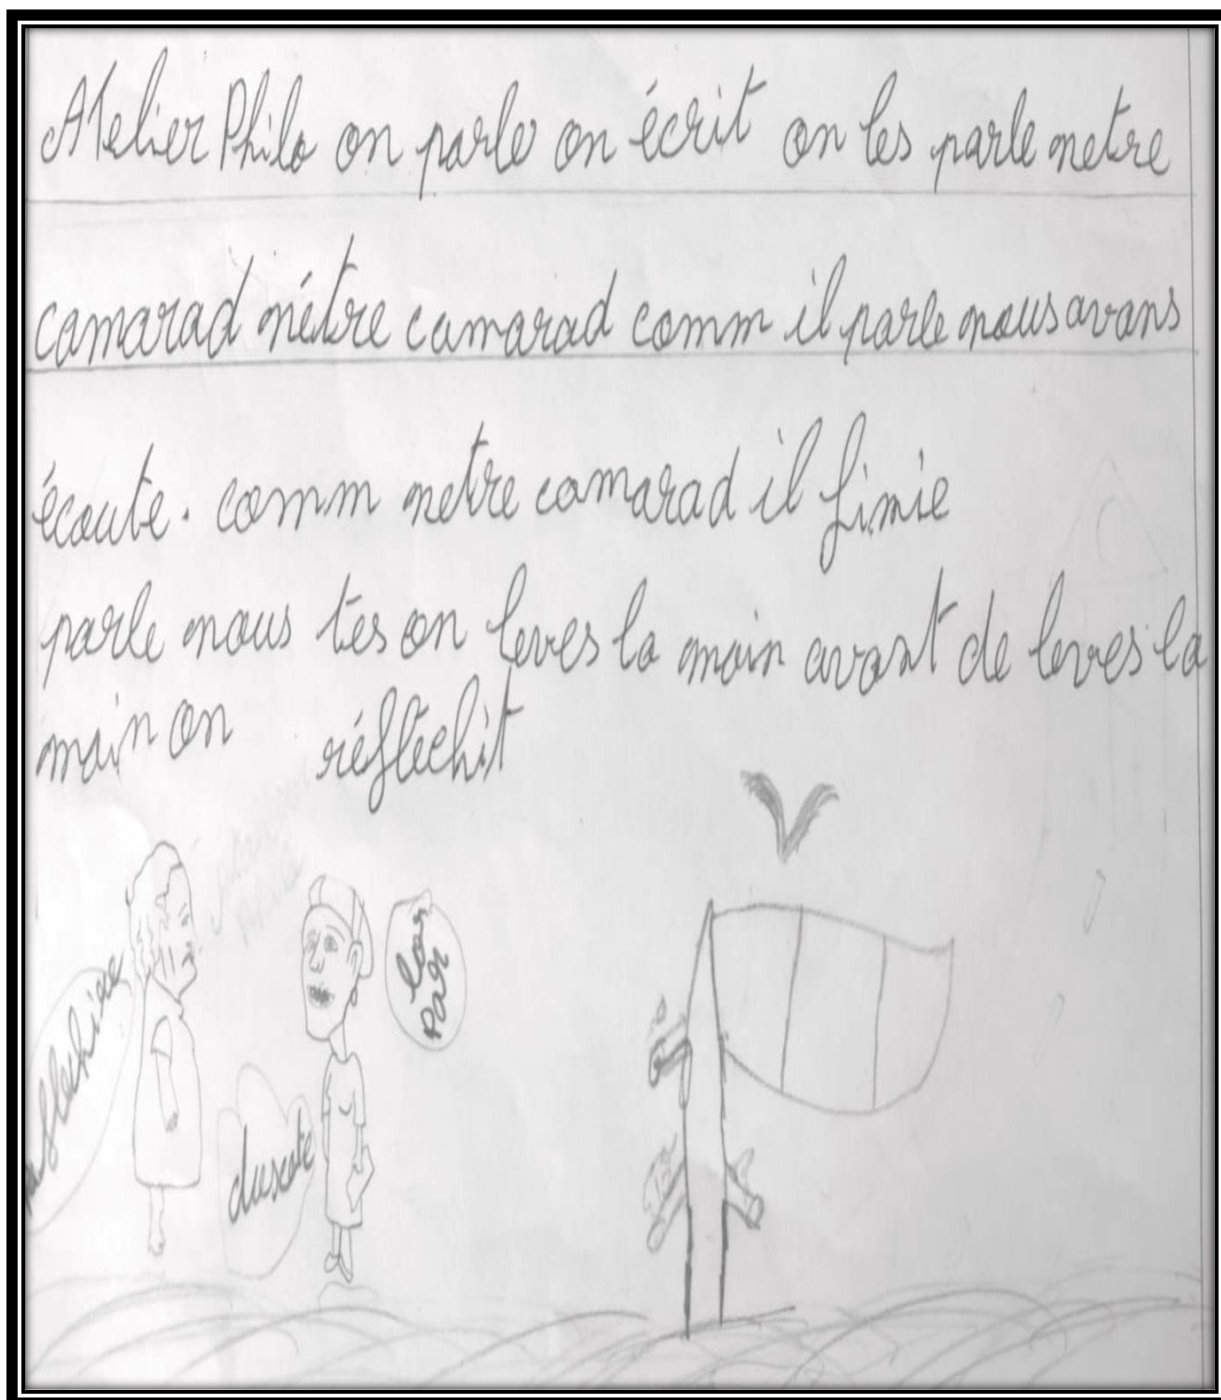 Atelier Philo on parle on écrit on les parle netre
camarad nétre camarad comm il parle nous avans
écoute. comm netre camarad il finie
parle nous tes on leves la main avant de leves la
main on réfléchit